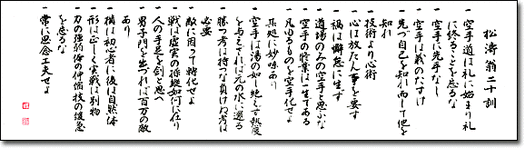 松涛翁二十訓
一空手道は礼に始まり礼
に終ることを忘るな
一空手に先手なし
一空手は義のたすけ
一先づ自己を知れ而して他を
知れ
一技術より心術
一心は放たん事を要す
一禍は懈怠に生ず
一道場のみの空手と思ふな
一空手の修業は一生である
一凡ゆるものを空手化せよ
其処に妙味あり
一空手は湯の如し絶えず熱度
を与えざれば元の水に還る
一勝つ考は持つな負けぬ考は
必要
一敵に因って轉化せよ
一戦は虚実の操縦如何に在り
一人の手足を剣と思へ
一男子門を出づれば百万の敵
あり
一構は初心者に後は自然体
一形は正しく実戦は別物
一力の強弱体の伸縮技の緩急
を忘るな
一常に思念工夫せよ